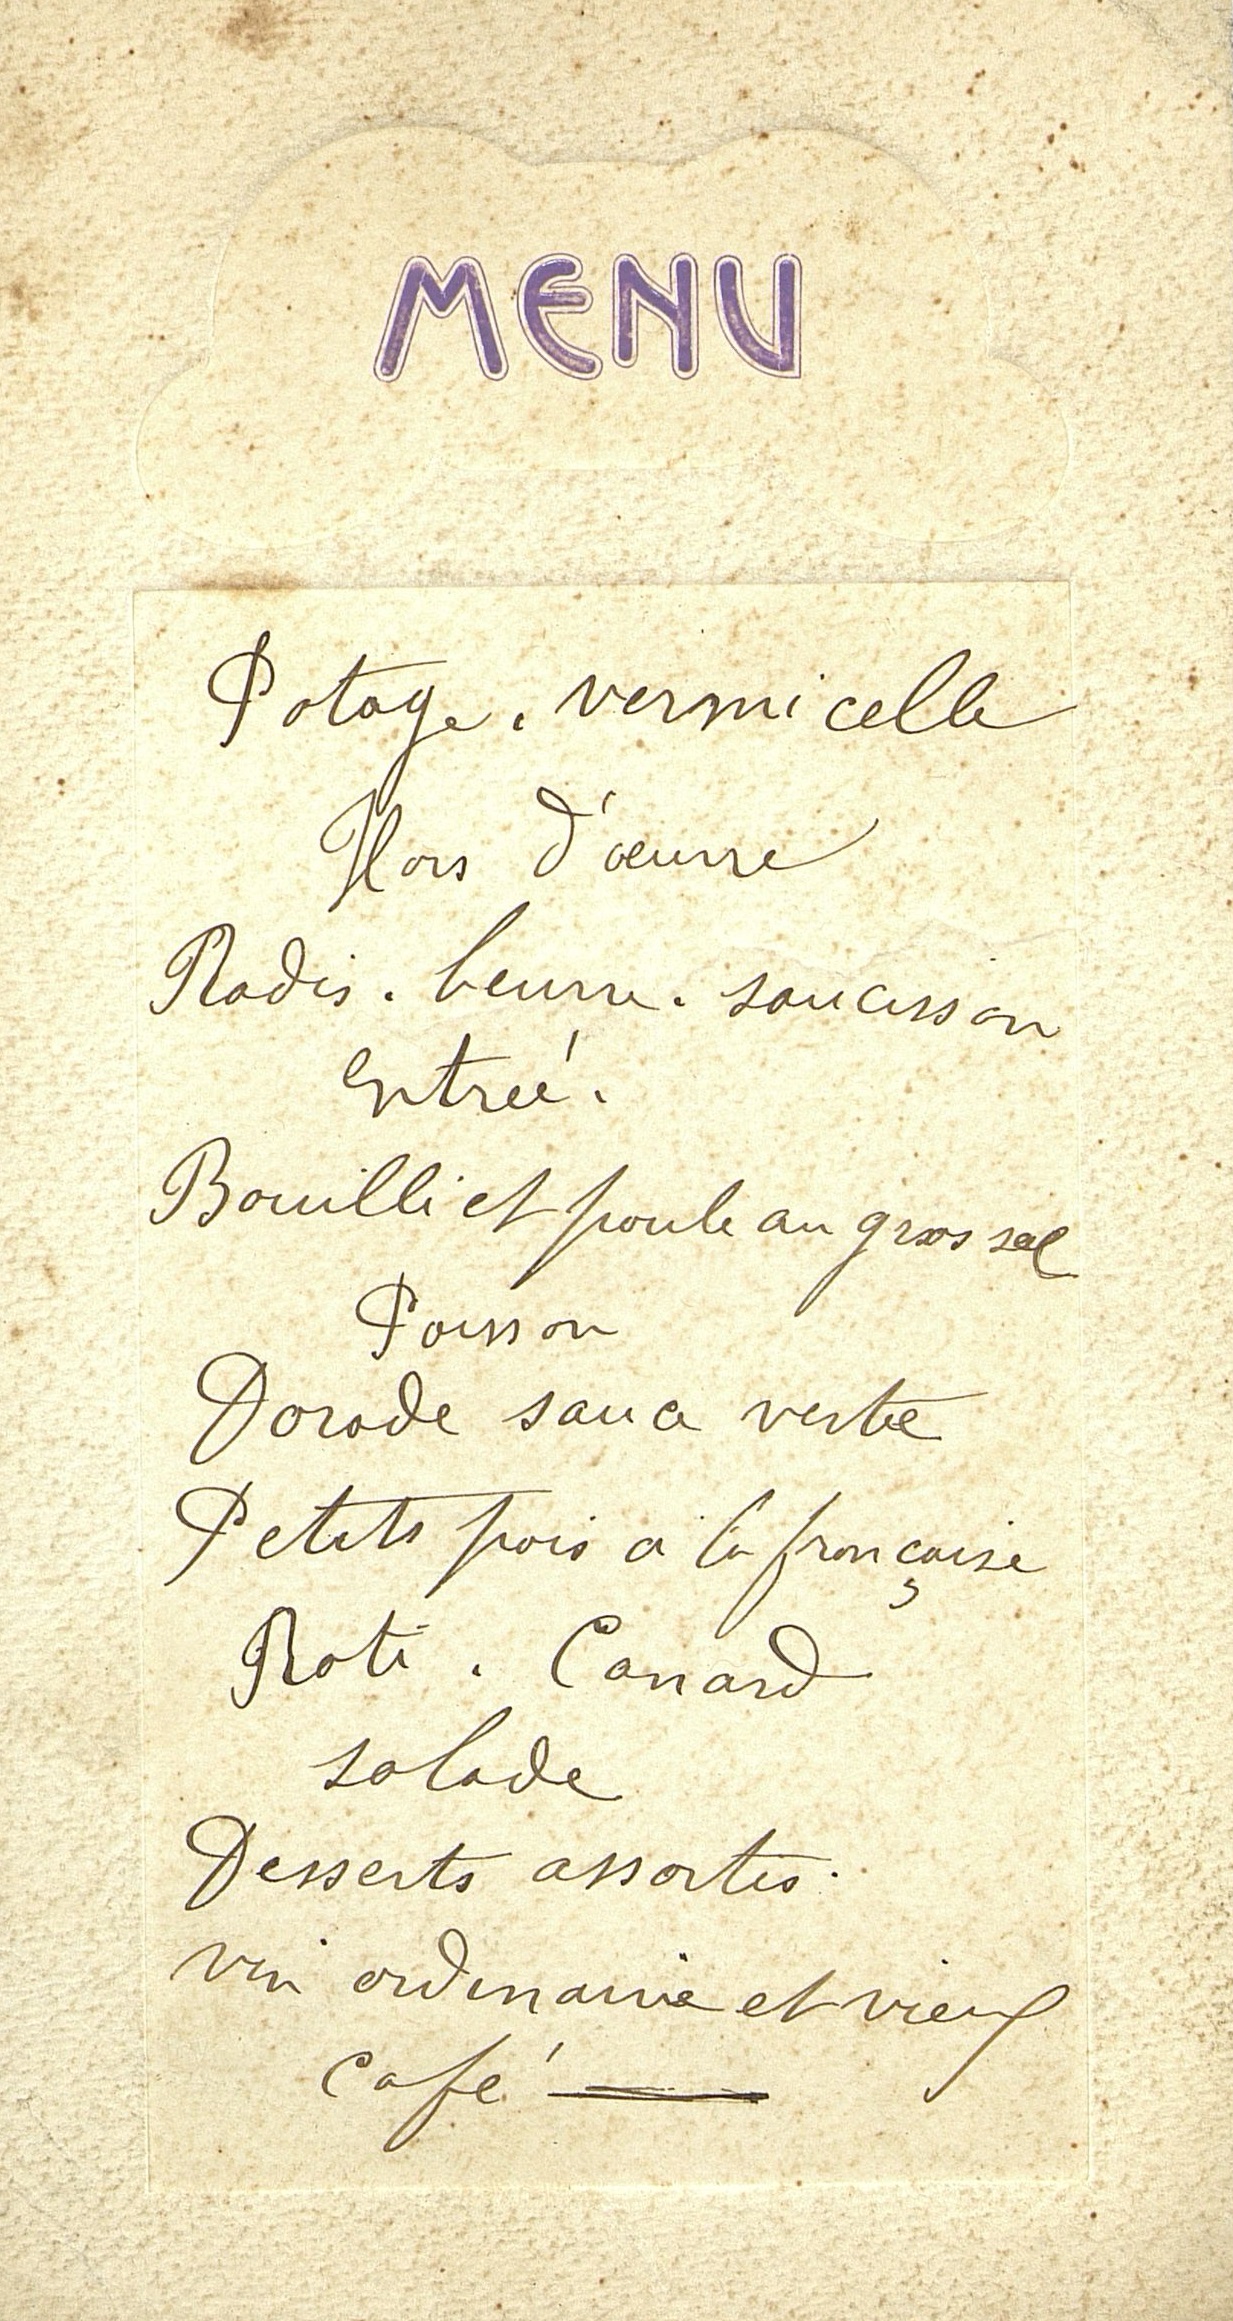 MENU
Potage. vermicelle
Hors d'œuvre
Radis. beurre. saucisson
Entreé.
Bouilli et poule au gros sel
Poisson
Dorade sauce verte
Petits pois a la française
Roti. Canard
salade
Desserts assortis.
vin ordinaire et vieux
Café